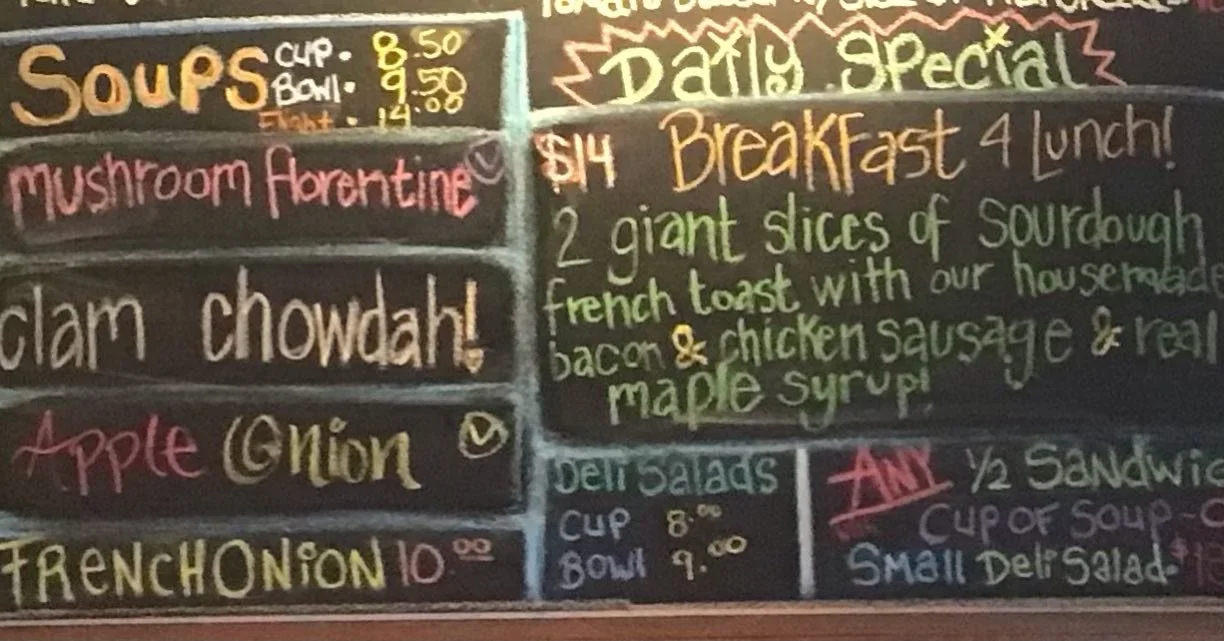 Soups CUP. 8.50
BOWl. 9.50
Flight. 14.00
Mushroom florentine V
clam chowdah!
Apple Onion V
FRENCH ONiON 10.00
Daily Special
$14 BreakFast 4 Lunch!
2 giant slices of sourdough
french toast with our housemade
bacon & chicken sausage & real
maple syrup!
Deli Salads
CUP 8.00
BOWl 9.00
ANY 1/2 SANDWIC
CUP OF SOUP-
SMAll Deli Salad.